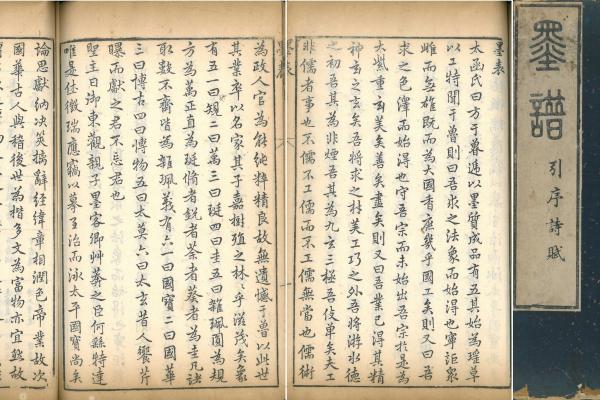 墨譜
引序詩賦
墨表
太函氏曰方于魯遞以墨質成品有五其始為瑶草
以工特聞于魯則曰吾求之法象而始得也寧詎衆
雌而無雄既而為大國香庶幾乎國工矣則又曰吾
求之色澤而始得也守吾宗而未始出吾宗於是為
太紫重玄美矣善矣盡矣則又曰吾業已得其精
神玄之玄矣吾將求之材美工巧之外吾將游水德
之初吾其為非煙吾其為九玄三極吾伎單矣夫工
非儒者事也不儒不工儒而不工儒無當也儒術
墨表
為政人官為能純粹精良故無遺憾于魯以此世
其業卒以名家其子嘉樹殖之林〻乎滋茂矣象
有五一曰規二曰萬三曰珽四曰圭五曰雜珮圓為規
方為萬正直為珽脩者銳者荼者葵者為圭凡
取數不齊皆為雜珮義有六一曰國寶二曰國華
三曰博古四曰博物五曰太莫六曰太玄昔人饗芹
曝而獻之君不忘君也
聖主日御東觀親子墨客卿艸莽之臣何繇特達
唯是徵瑞應竊以摹王治而泳太平國寶尚矣
論思獻納決策摛辭經緯章相潤色帝業故次
國華古人與稽後世為楷多文為富物亦宜然故